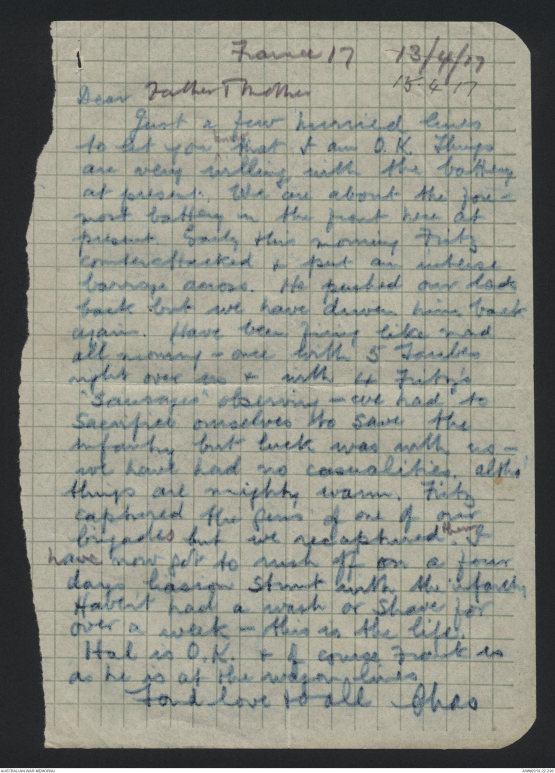 France 17 13/4/17
15.4.17
Dear Father & Mother
Just a few hurried lines
to let you know that I am O.K. Things
are very willing with the battery
at present. We are about the fore-
most battery in the front here at
present. Early this morning Fritz
counterattacked & put an intense
barrage across. He pushed our lads
back but we have driven him back
again. Have been firing like mad
all morning – once with 5 Taubes
right over us & with 4 Fritz's
"Sausages" observing – we had to
sacrifice ourselves to save the
infantry but luck was with us –
we have had no casualities, altho'
things are mighty warm. Fritz
captured the guns of one of our
brigades but we recaptured them. I
have now got to rush off on a four
days liason stunt with the infantry
Haven't had a wash or shave for
over a week – this is the life.
Hal is O.K. & of course Frank is
as he is at the wagon lines
Fond love to all Chas
AUSTRALIAN WAR MEMORIAL